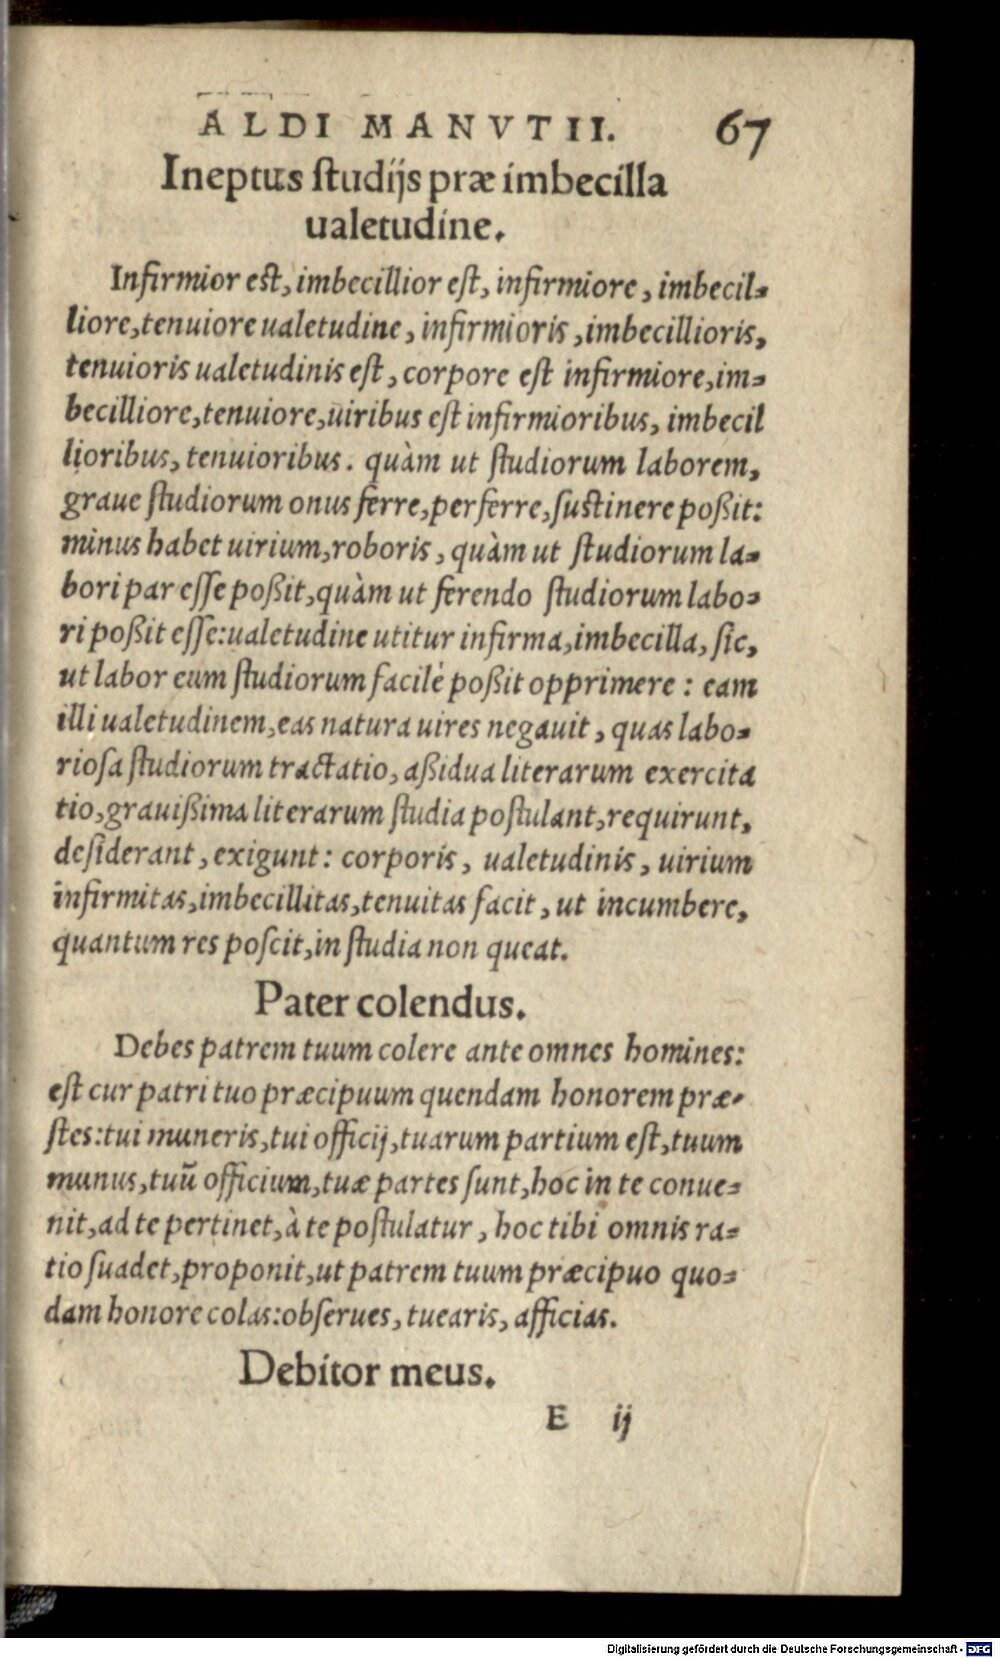 ALDI MANVTII. 67
Ineptus ſtudijs præ imbecilla
ualetudine.
Infirmior eſt, imbecillior eſt, infirmiore, imbecil-
liore, tenuiore ualetudine, infirmioris, imbecillioris,
tenuioris ualetudinis eſt, corpore eſt infirmiore, im-
becilliore, tenuiore, uiribus eſt infirmioribus, imbecil
lioribus, tenuioribus. quàm ut ſtudiorum laborem,
graue ſtudiorum onus ferre, perferre, ſuſtinere poßit:
minus habet uirium, roboris, quàm ut ſtudiorum la-
bori par eſſe poßit, quàm ut ferendo ſtudiorum labo-
ri poßit eſſe: ualetudine utitur infirma, imbecilla, ſic,
ut labor eum ſtudiorum facilè poßit opprimere: eam
illi ualetudinem, eas natura uires negauit, quas labo-
rioſa ſtudiorum tractatio, aßidua literarum exercita
tio, grauißima literarum ſtudia poſtulant, requirunt,
deſiderant, exigunt: corporis, ualetudinis, uirium
infirmitas, imbecillitas, tenuitas facit, ut incumbere,
quantum res poſcit, in ſtudia non queat.
Pater colendus.
Debes patrem tuum colere ante omnes homines:
eſt cur patri tuo præcipuum quendam honorem præ-
ſtes: tui muneris, tui officij, tuarum partium eſt, tuum
munus, tuū officium, tuæ partes ſunt, hoc in te conue-
nit, ad te pertinet, à te poſtulatur, hoc tibi omnis ra-
tio ſuadet, proponit, ut patrem tuum præcipuo quo-
dam honore colas: obſerues, tuearis, afficias.
Debitor meus.
E ij
Digitalisierung gefördert durch die Deutsche Forschungsgemeinschaft - DFG